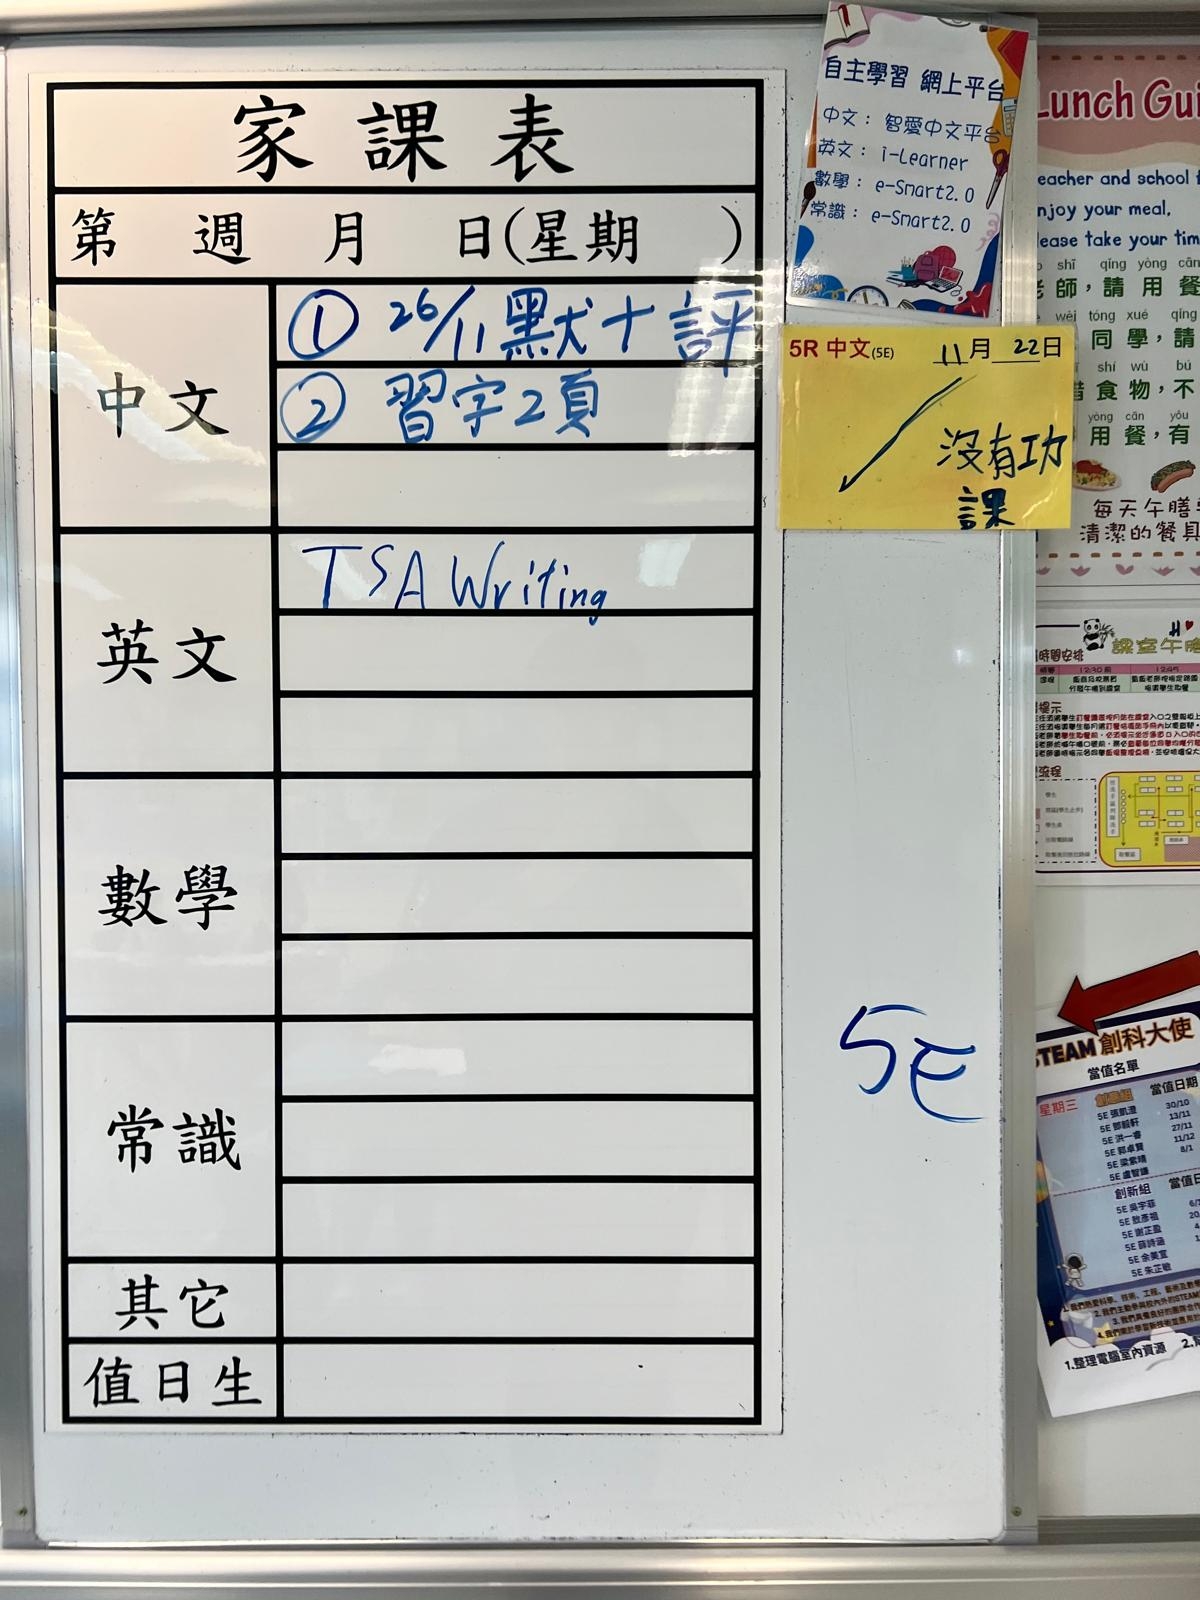 家課表
第 週 月 日(星期 )
中文
① 26/11 默十評
② 習字2頁
英文
TSA Writing
數學
常識
其它
值日生
自主學習 網上平台
中文： 智愛中文平台
英文： i-Learner
數學： e-Smart2.0
常識： e-Smart2.0
5R 中文(5E) 11月 22日
沒有功
課
5E
Lunch Gui
eacher and school
njoy your meal,
lease take your tim
shī qǐng yòng cān
老師，請用餐
wèi tóng xué qǐng
同學，請
shí wù bú
惜食物，不
yòng cān yǒu
用餐，有
每天午膳
清潔的餐具
課室午膳
時間安排
12:30 12:45
提示
流程
STEAM 創科大使
當值名單
星期三 創意組 當值日期
5E 張凱澄 30/10
5E 鄧毅軒 13/11
5E 洪一睿 27/11
5E 郭卓賢 11/12
5E 梁紫晴 8/1
5E 盧智謙
創新組
5E 吳宇菲
5E 敖彥祖
5E 謝芷盈
5E 薛詩涵
5E 余美宣
5E 朱芷敏
1.整理電腦室內資源